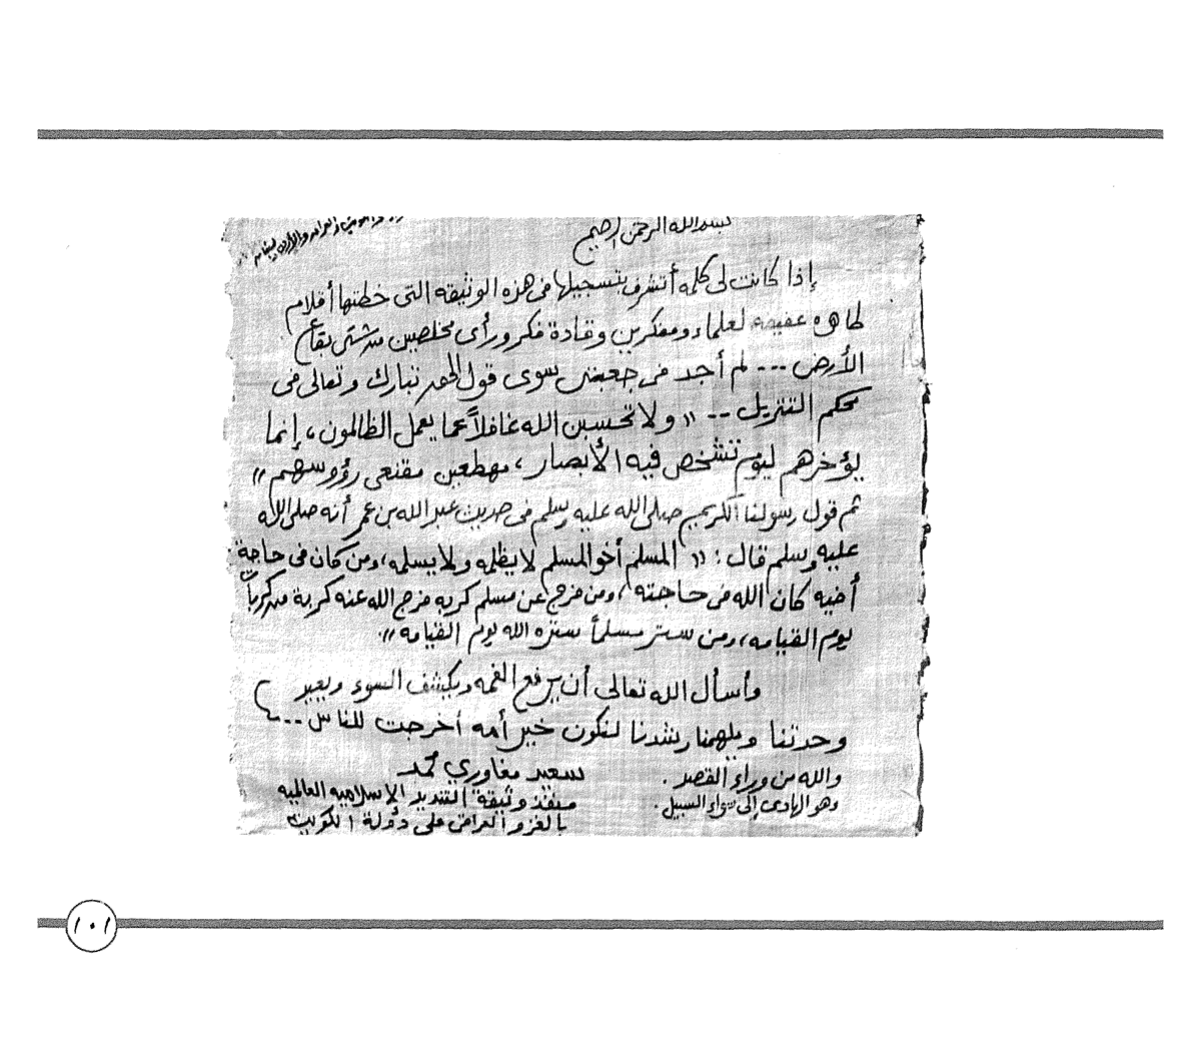 بسم الله الرحمن الرحيم
إذا كانت لى كلمه أتشرف بتسجيلها فى هذه الوثيقه التى خطتها أقلام
طاهره عفيفه لعلماء ومفكرين وقادة فكر ورأى مخلصين من شتى بقاع
الأرض --- لم أجد فى جعبتى سوى قول الحق تبارك وتعالى فى
محكم التنزيل -- " ولا تحسبن الله غافلاً عما يعمل الظالمون ، إنما
يؤخرهم ليوم تشخص فيه الأبصار ، مهطعين مقنعى رؤوسهم "
ثم قول رسولنا الكريم صلى الله عليه وسلم فى حديث عبد الله بن عمر أنه صلى الله
عليه وسلم قال : " المسلم أخو المسلم لا يظلمه ولا يسلمه ، ومن كان فى حاجة
أخيه كان الله فى حاجته ، ومن فرج عن مسلم كربه فرج الله عنه كربة من كربات
يوم القيامه ، ومن ستر مسلماً ستره الله يوم القيامه ".
وأسأل الله تعالى أن يرفع الغمه ويكشف السوء ويعيد
وحدتنا ويلهمنا رشدنا لنكون خير أمه أخرجت للناس ---
والله من وراء القصد .
وهو الهادى إلى سواء السبيل .
سعيد مغاوري محمد
منفذ وثيقة التنديد الإسلاميه العالميه
بالغزو العراقى على دولة الكويت
١٠١